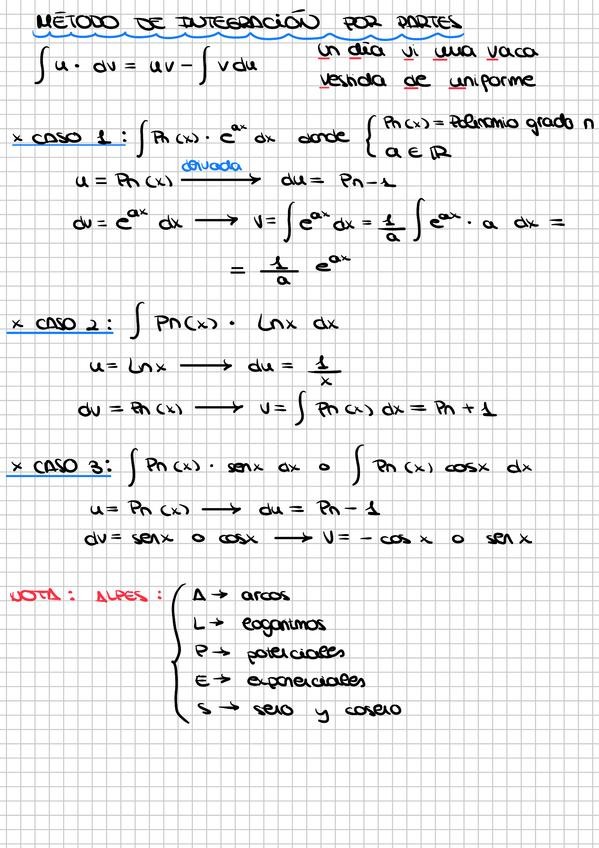 MÉTODO DE INTEGRACIÓN POR PARTES
∫ u · dv = uv - ∫ v du
un día vi una vaca
vestida de uniforme
x CASO 1: ∫ Pn(x) · e^ax dx donde { Pn(x) = Polinomio grado n
a ∈ ℝ
u = Pn(x) → derivada du = Pn-1
dv = e^ax dx → v = ∫ e^ax dx = 1/a ∫ e^ax · a dx =
= 1/a e^ax
x CASO 2: ∫ Pn(x) · Lnx dx
u = Lnx → du = 1/x
dv = Pn(x) → v = ∫ Pn(x) dx = Pn + 1
x CASO 3: ∫ Pn(x) · senx dx o ∫ Pn(x) cosx dx
u = Pn(x) → du = Pn - 1
dv = senx o cosx → v = - cos x o sen x
NOTA: ALPES: { A → arcos
L → logaritmos
P → potenciales
E → exponenciales
S → seno y coseno